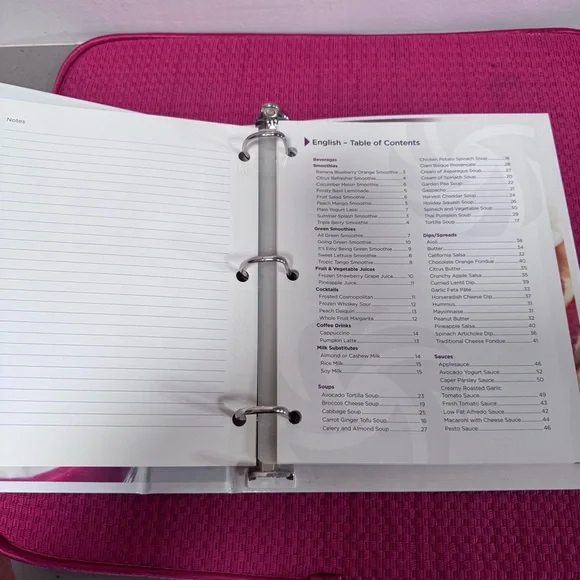 Notes
English – Table of Contents
Beverages
Smoothies
Banana Blueberry Orange Smoothie 3
Citrus Refresher Smoothie 4
Cucumber Melon Smoothie 6
Finally Basil Lemonade 5
Fruit Salad Smoothie 6
Peach Mango Smoothie 5
Plain Yogurt Lassi 7
Summer Splash Smoothie 3
Triple Berry Smoothie 4
Green Smoothies
All Green Smoothie 7
Going Green Smoothie 10
It's Easy Being Green Smoothie 9
Sweet Lettuce Smoothie 8
Tropic Tango Smoothie 8
Fruit & Vegetable Juices
Frozen Strawberry Grape Juice 10
Pineapple Juice 11
Cocktails
Frosted Cosmopolitan 11
Frozen Whiskey Sour 12
Peach Daiquiri 13
Whole Fruit Margarita 12
Coffee Drinks
Cappuccino 14
Pumpkin Latte 13
Milk Substitutes
Almond or Cashew Milk 14
Rice Milk 15
Soy Milk 15
Soups
Avocado Tortilla Soup 23
Broccoli Cheese Soup 19
Cabbage Soup 25
Carrot Ginger Tofu Soup 16
Celery and Almond Soup 27
Chicken Potato Spinach Soup 18
Clam Bisque Provencale
Cream of Asparagus Soup
Cream of Spinach Soup
Garden Pea Soup 22
Gazpacho
Harvest Cheddar Soup
Holiday Squash Soup
Spinach and Vegetable Soup
Thai Pumpkin Soup 29
Tortilla Soup 17
Dips/Spreads
Aioli 38
Butter 34
California Salsa 32
Chocolate Orange Fondue 40
Citrus Butter 35
Crunchy Apple Salsa 39
Curried Lentil Dip 39
Garlic Feta Pâté 33
Horseradish Cheese Dip 37
Hummus 31
Mayonnaise 31
Peanut Butter 32
Pineapple Salsa 40
Spinach Artichoke Dip 36
Traditional Cheese Fondue 41
Sauces
Applesauce 46
Avocado Yogurt Sauce 52
Caper Parsley Sauce 50
Creamy Roasted Garlic
Tomato Sauce 49
Fresh Tomato Sauce 43
Low Fat Alfredo Sauce 42
Macaroni with Cheese Sauce 44
Pesto Sauce 46